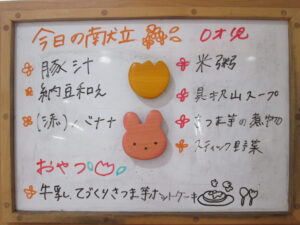 今日の献立
0才児
豚汁
納豆和え
(流) バナナ
米粥
具沢山スープ
さつま芋の煮物
スティック野菜
おやつ
牛乳、てづくりさつま芋ホットケーキ